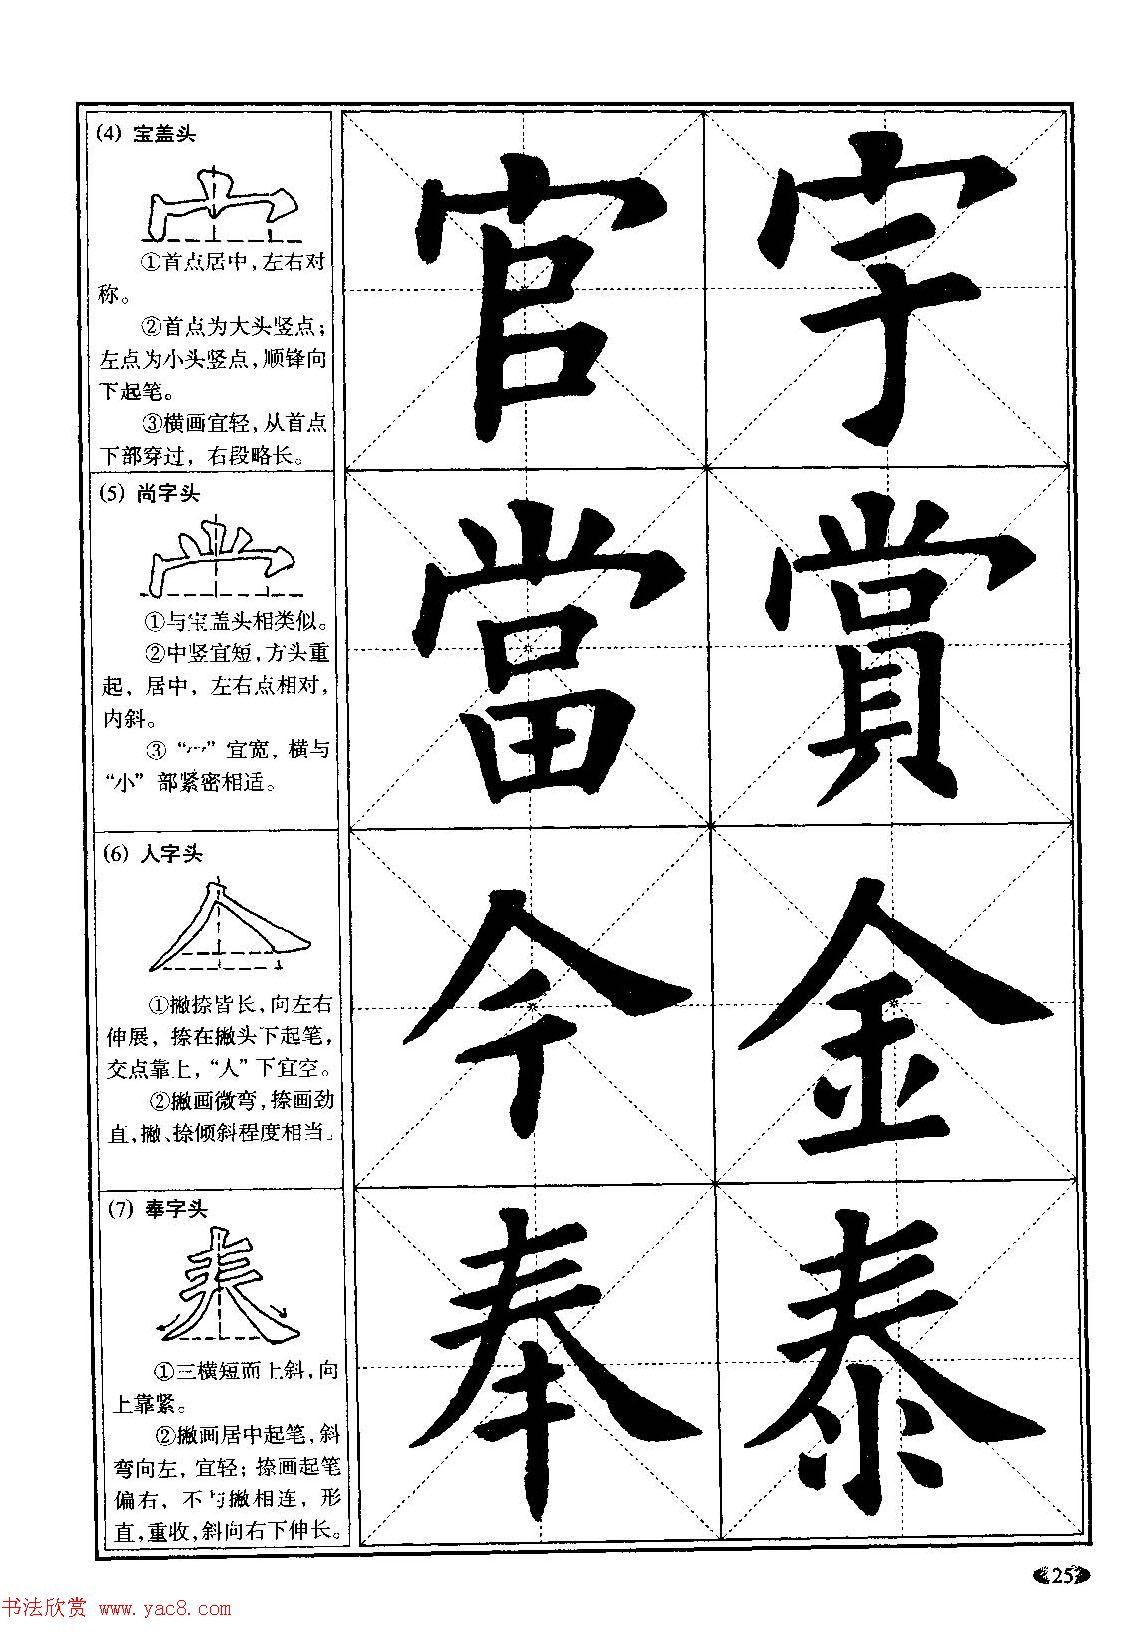 (4) 宝盖头
①首点居中，左右对
称。
②首点为大头竖点；
左点为小头竖点，顺锋向
下起笔。
③横画宜轻，从首点
下部穿过，右段略长。
官字
(5) 尚字头
①与宝盖头相类似。
②中竖宜短，方头重
起，居中，左右点相对，
内斜。
③“冖”宜宽，横与
“小”部紧密相适。
當賞
(6) 人字头
①撇捺皆长，向左右
伸展，捺在撇头下起笔，
交点靠上，“人”下宜空。
②撇画微弯，捺画劲
直，撇、捺倾斜程度相当。
今金
(7) 奉字头
①三横短而上斜，向
上靠紧。
②撇画居中起笔，斜
弯向左，宜轻；捺画起笔
偏右，不与撇相连，形
直，重收，斜向右下伸长。
奉泰
25
书法欣赏 www.yac8.com